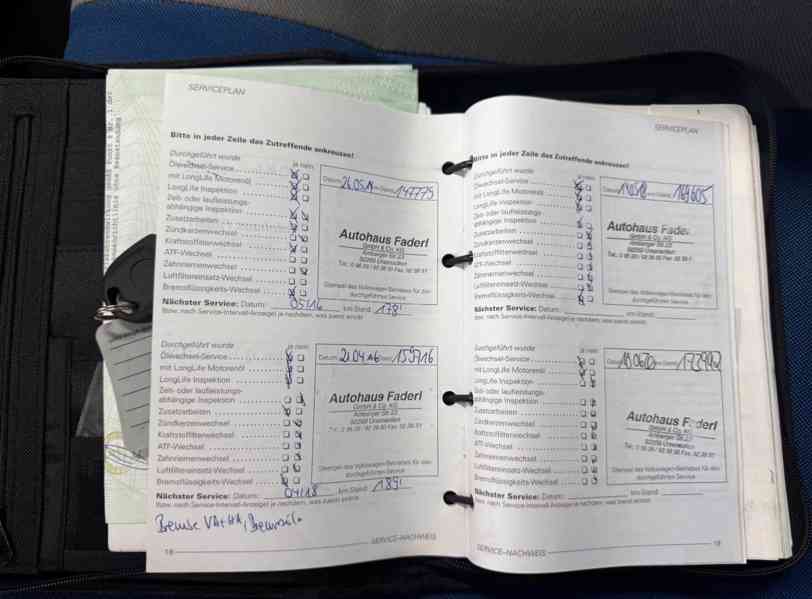 SERVICEPLAN
Bitte in jeder Zeile das Zutreffende ankreuzen!
Durchgeführt wurde
ja nein
Ölwechsel-Service
mit LongLife Motorenöl
LongLife Inspektion
Zeit- oder laufleistungs-
abhängige Inspektion
Zusatzarbeiten
Zündkerzenwechsel
Kraftstoffilterwechsel
ATF-Wechsel
Zahnriemenwechsel
Luftfiltereinsatz-Wechsel
Bremsflüssigkeits-Wechsel
Datum 147775
Autohaus Faderl
GmbH & Co. KG
Amberger Str. 23
Stempel des Volkswagen-Betriebs für den
durchgeführten Service
Nächster Service: Datum: 05/16 km-Stand:
Bzw. nach Service-Intervall-Anzeige! je nachdem, was zuerst eintritt
Durchgeführt wurde
ja nein
Ölwechsel-Service
mit LongLife Motorenöl
LongLife Inspektion
Zeit- oder laufleistungs-
abhängige Inspektion
Zusatzarbeiten
Zündkerzenwechsel
Kraftstoffilterwechsel
ATF-Wechsel
Zahnriemenwechsel
Luftfiltereinsatz-Wechsel
Bremsflüssigkeits-Wechsel
Datum
Autohaus Faderl
GmbH & Co. KG
Amberger Str. 23
Stempel des Volkswagen-Betriebs für den
durchgeführten Service
Nächster Service: Datum: 04/18 km-Stand:
Bzw. nach Service-Intervall-Anzeige! je nachdem, was zuerst eintritt
Bremse VA+HA,
18
SERVICE-NACHWEIS
SERVICEPLAN
Bitte in jeder Zeile das Zutreffende ankreuzen!
Durchgeführt wurde
ja nein
Ölwechsel-Service
mit LongLife Motorenöl
LongLife Inspektion
Zeit- oder laufleistungs-
abhängige Inspektion
Zusatzarbeiten
Zündkerzenwechsel
Kraftstoffilterwechsel
ATF-Wechsel
Zahnriemenwechsel
Luftfiltereinsatz-Wechsel
Bremsflüssigkeits-Wechsel
169605
Autohaus Faderl
GmbH & Co. KG
Amberger Str. 23
Stempel des Volkswagen-Betriebs für den
durchgeführten Service
Nächster Service: Datum: km-Stand:
Bzw. nach Service-Intervall-Anzeige! je nachdem, was zuerst eintritt
Durchgeführt wurde
ja nein
Ölwechsel-Service
mit LongLife Motorenöl
LongLife Inspektion
Zeit- oder laufleistungs-
abhängige Inspektion
Zusatzarbeiten
Zündkerzenwechsel
Kraftstoffilterwechsel
ATF-Wechsel
Zahnriemenwechsel
Luftfiltereinsatz-Wechsel
Bremsflüssigkeits-Wechsel
Autohaus Faderl
GmbH & Co. KG
Amberger Str. 23
Stempel des Volkswagen-Betriebs für den
durchgeführten Service
Nächster Service: Datum: km-Stand:
Bzw. nach Service-Intervall-Anzeige! je nachdem, was zuerst eintritt
SERVICE-NACHWEIS